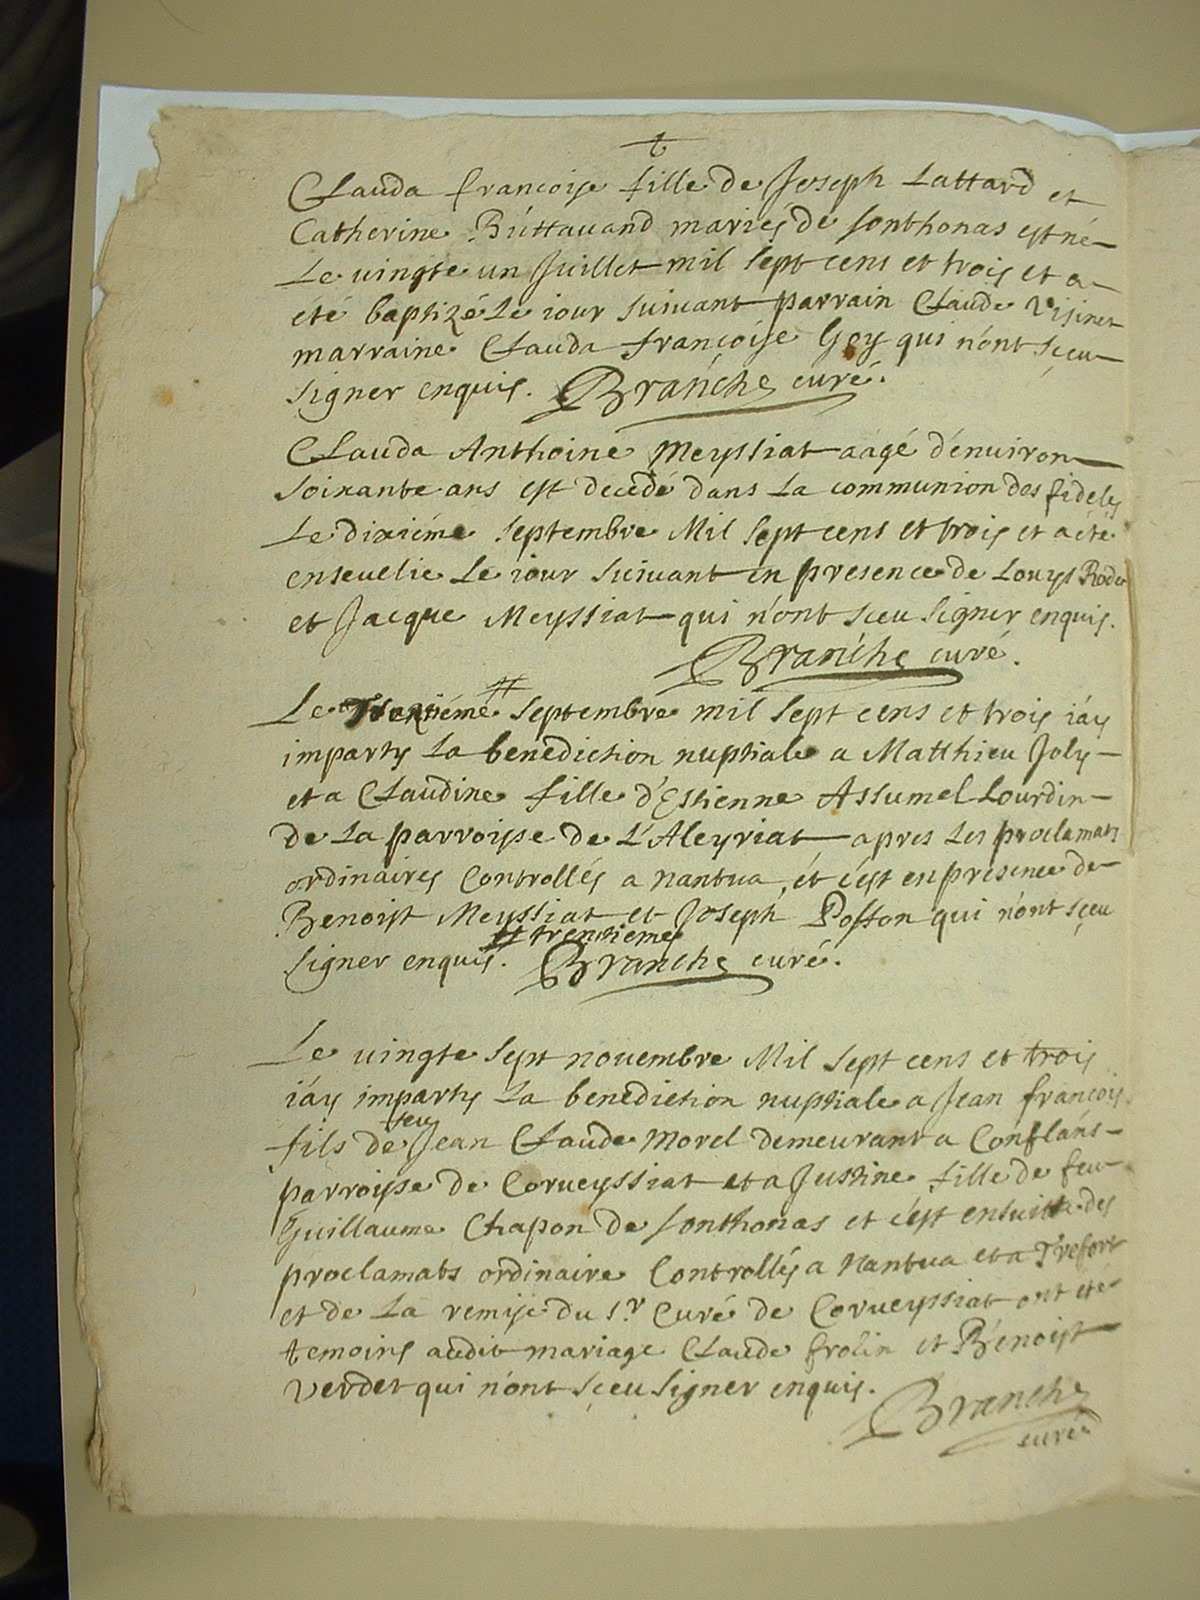 Clauda francoise fille de Joseph Lattard et
Catherine Buttavand mariés de sonthonas est né
Le vingte un Juillet mil sept cens et trois et a
été baptizé Le iour suivant parrain Claude Visinet
marraine Clauda francoise Goy qui n'ont sceu
signer enquis. Branche curé.
Clauda Anthoine Meyssiat aagé d'environ
soixante ans est decedé dans La communion des fideles
Le dixiéme septembre Mil sept cens et trois et a été
ensevelie Le iour suivant en presence de Louys Rodet
et Jacque Meyssiat qui n'ont sceu signer enquis.
Branche curé.
Le # septembre mil sept cens et trois i'ay
imparty La benediction nuptiale a Matthieu Joly
et a Claudine fille d'Estienne Assumel Lourdin
de La parroisse de L'Aleyriat apres Les proclamats
ordinaires Controllés a nantua, et c'est en presence de
Benoist Meyssiat et Joseph Posson qui n'ont sçeu
# trentieme
signer enquis. Branche curé.
Le vingte sept novembre Mil sept cens et trois
i'ay imparty La benediction nuptiale a Jean françois
feu
fils de Jean Claude Morel demeurant a Conflans
parroisse de Corveyssiat et a Justine fille de feu
Guillaume Chapon de sonthonas et c'est ensuitte des
proclamats ordinaire Controllés a Nantua et a Trefort
et de La remise du Sr. Curé de Corveyssiat ont été
temoins audit mariage Claude frolin et Benoist
Verdet qui n'ont sçeu signer enquis.
Branche
curé